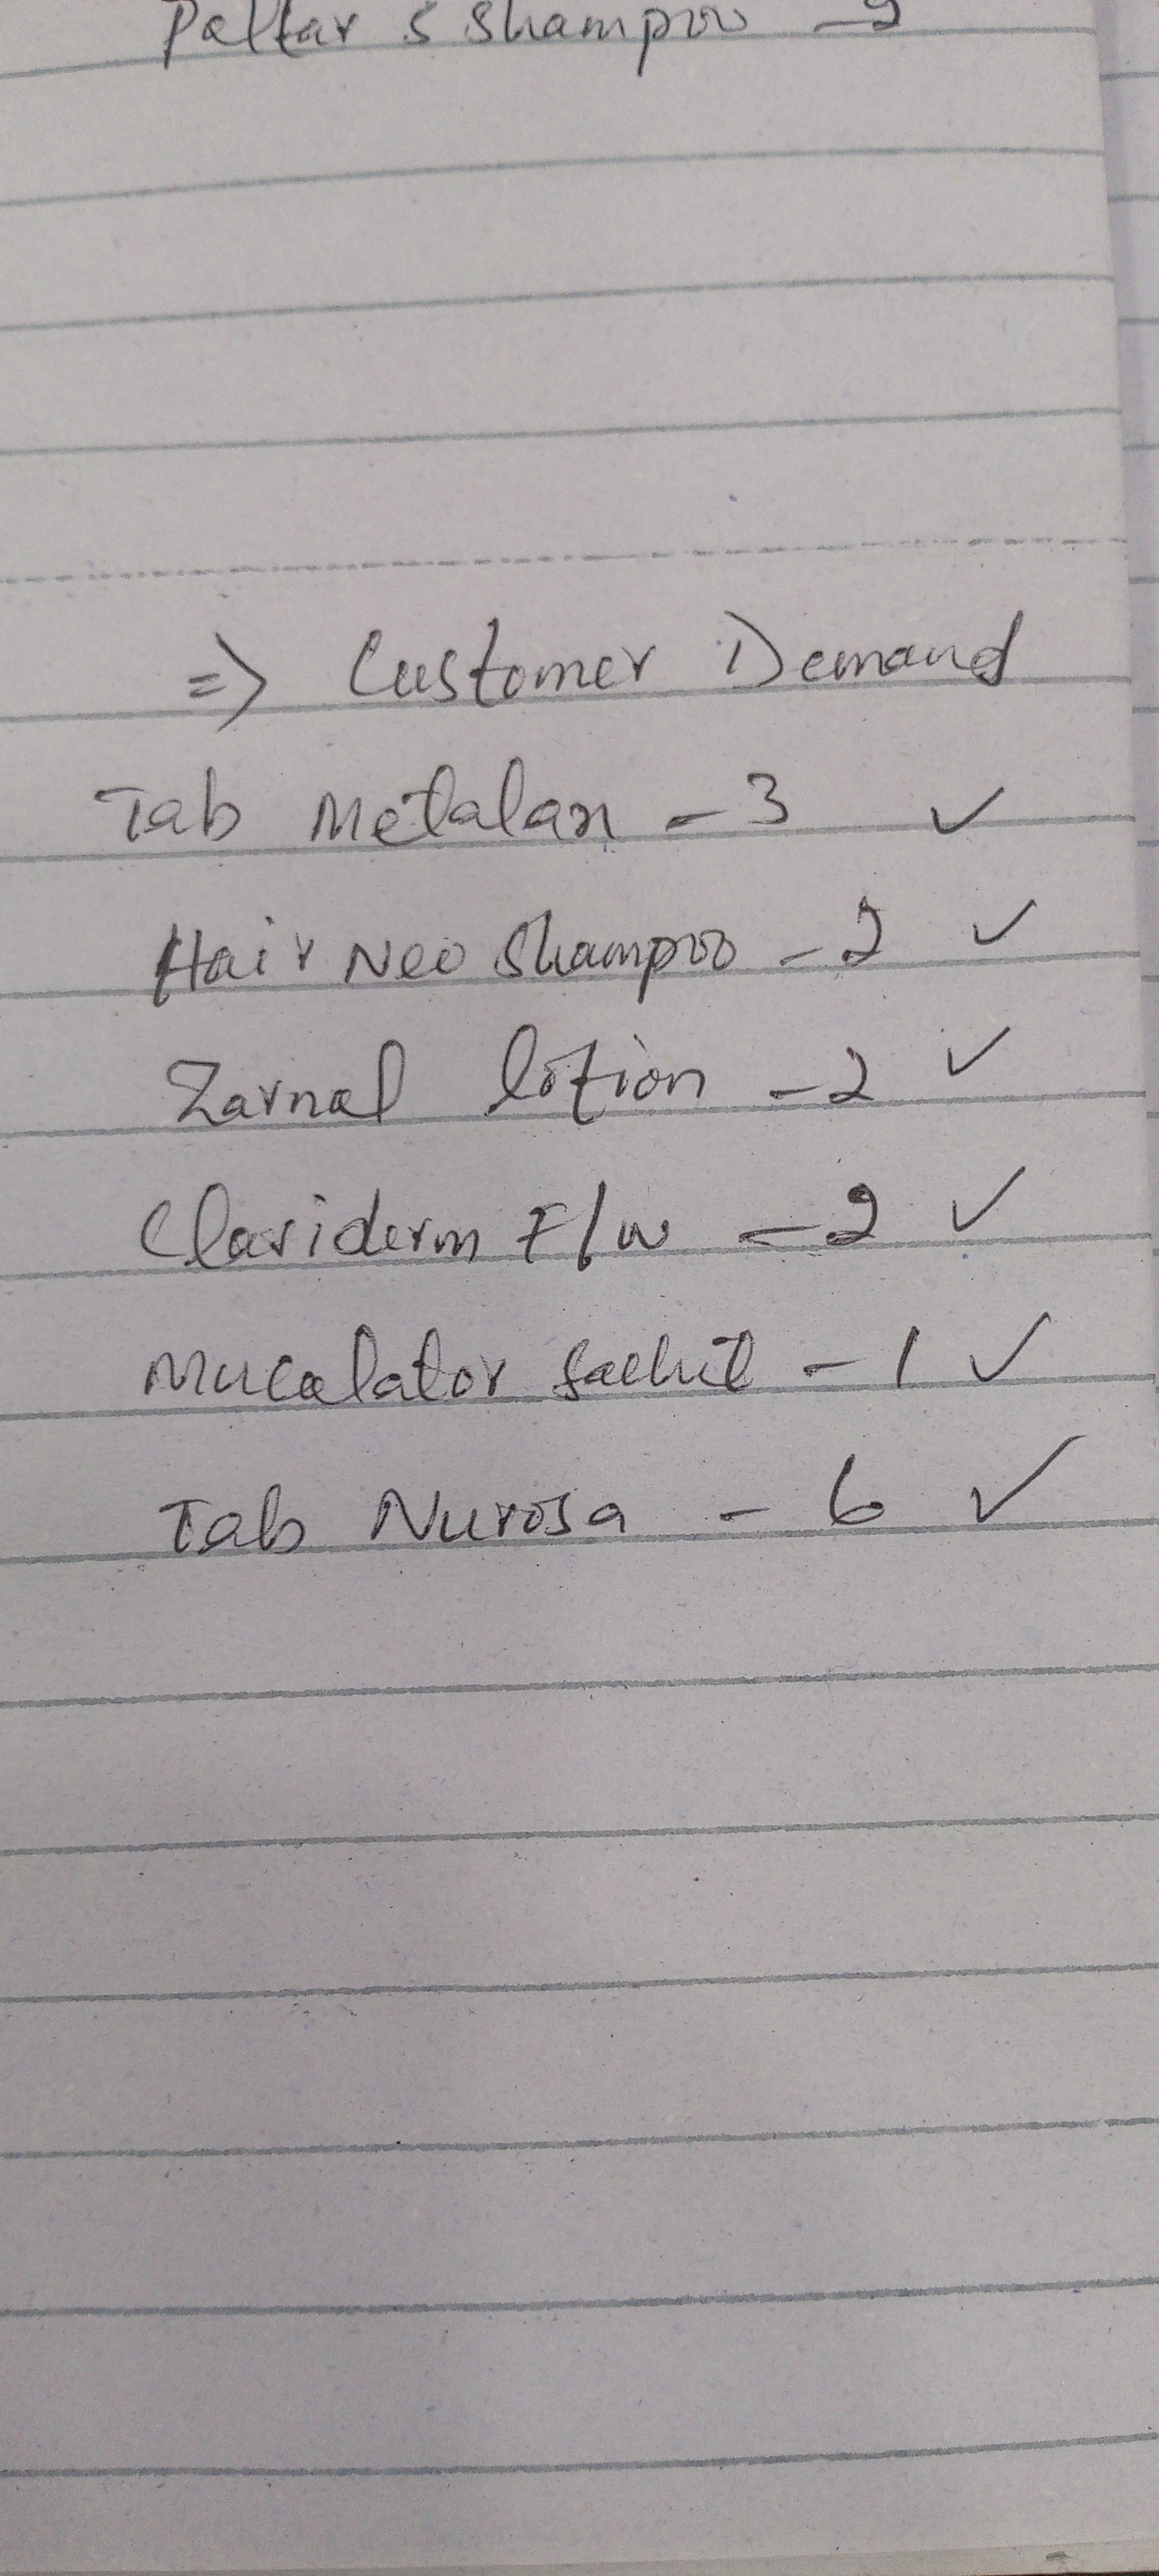 Paltar S Shampoo - 2
=> Customer Demand
Tab Metalax - 3 ✓
Hair Neo Shampoo - 2 ✓
Zarnal lotion - 2 ✓
Clariderm F/w - 2 ✓
Mucolator Sachit - 1 ✓
Tab Nurosa - 6 ✓